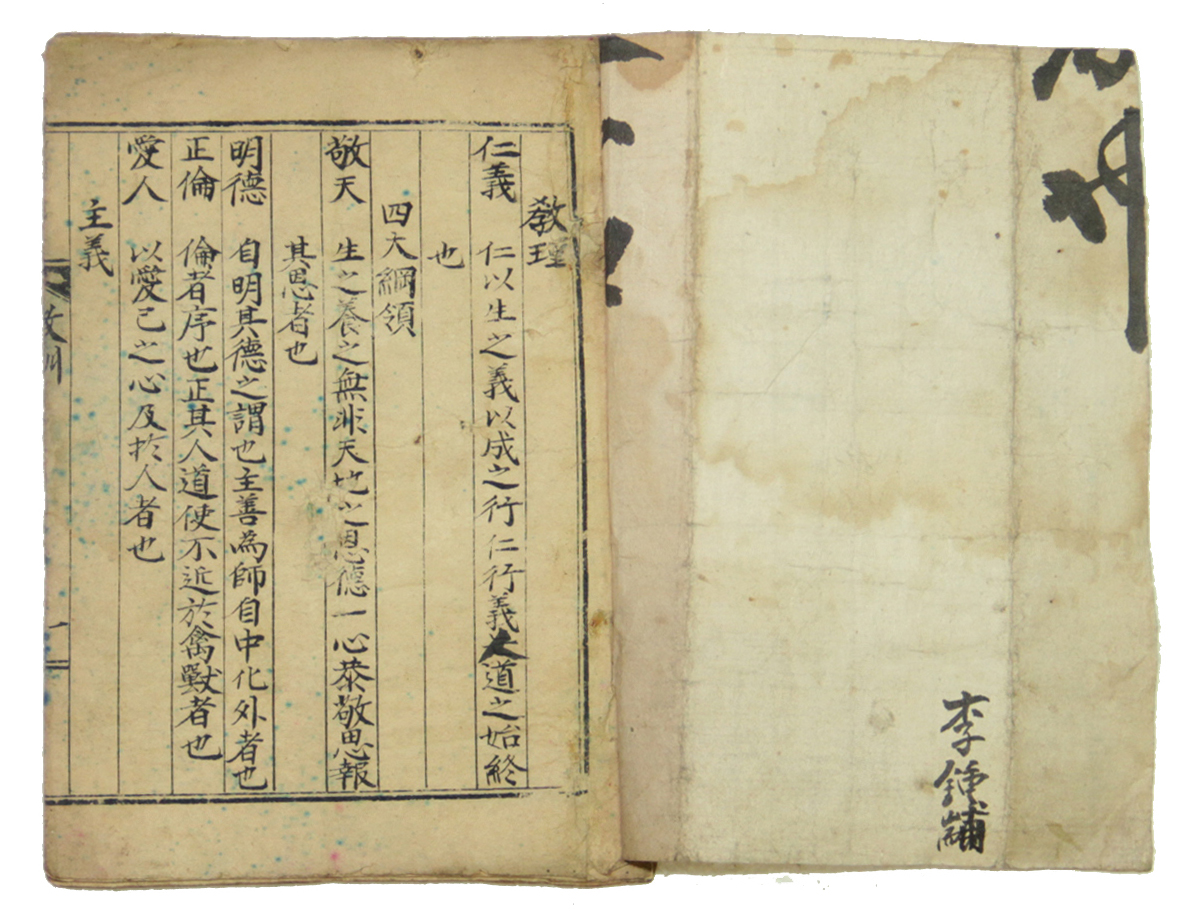 李鍾黼
教理
仁義 仁以生之義以成之行仁行義人道之始終
也
四大綱領
敬天 生之養之無非天地之恩德一心恭敬思報
其恩者也
明德 自明其德之謂也主善為師自中化外者也
正倫 倫者序也正其人道使不近於禽獸者也
愛人 以愛己之心及於人者也
主義